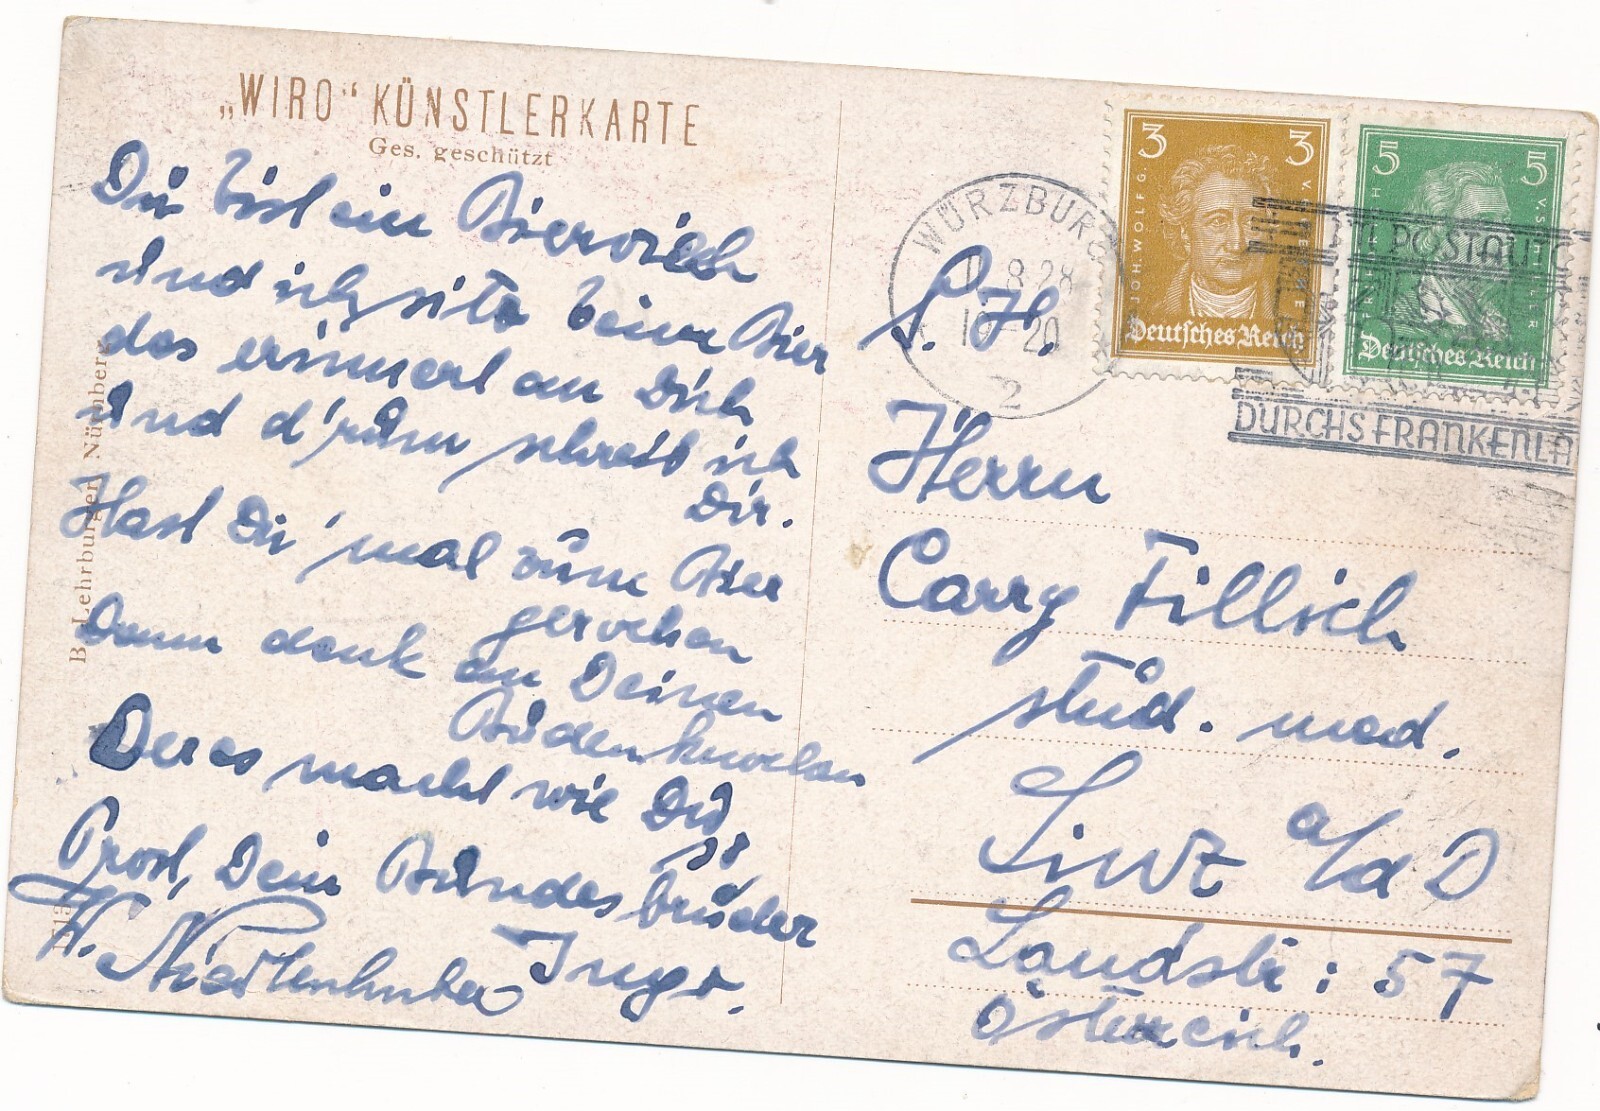 „WIRO“ KÜNSTLERKARTE
Ges. geschützt
Du bist ein Biervieh
und ich sitz beim Bier
das erinnert an Dich
und d'rum schreib ich
Dir.
Hast Du 'mal zum Bier
gerochen
Dann denk an Deinen
Budenknochen
Der es macht wie Du,
Prost, Dein Bundesbruder
Ingo.
B. Lehrburger, Nürnberg
WÜRZBURG
8.28
2
3 3
JOH. WOLFG. V.
Deutsches Reich
5 5
Deutsches Reich
POSTAUT
DURCHS FRANKENLA
S. H.
Herrn
Carry Fillich
stud. med.
Linz a/d D
Landstr: 57
Österreich.